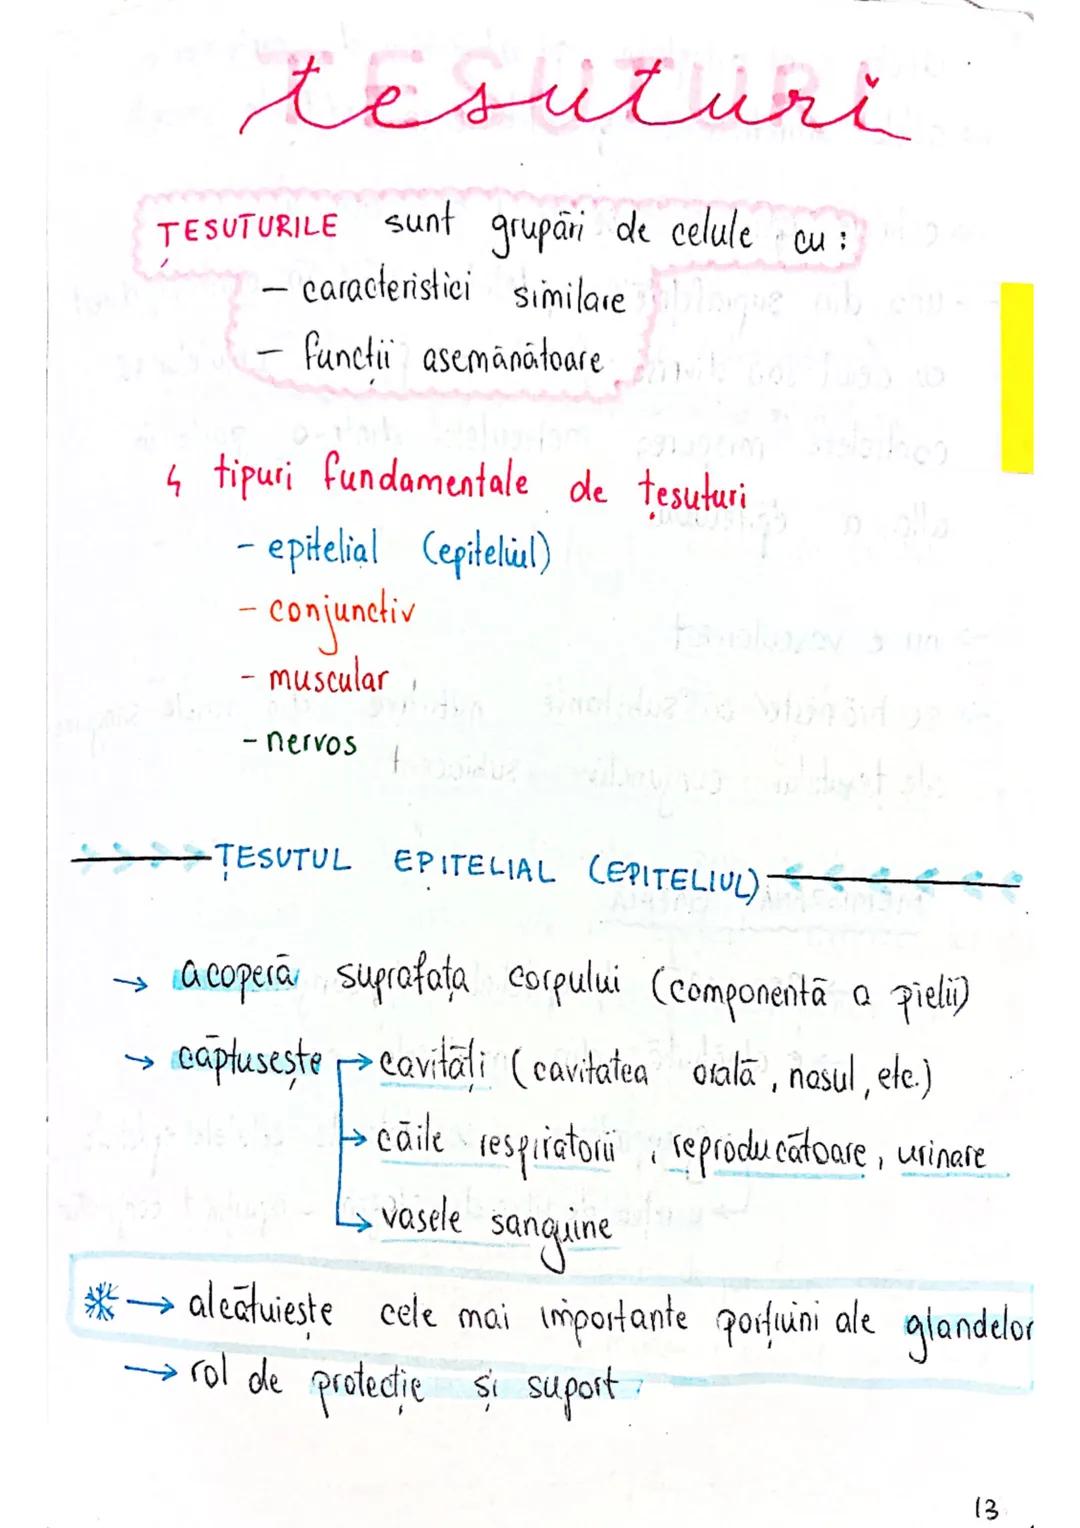 tesuturi
ȚESUTURILE sunt grupări de celule cu:
- caracteristici similare
- funcții asemănătoare
4 tipuri fundamentale de țesuturi
- epitelial (epiteliul)
- conjunctiv
- muscular
- nervos
ȚESUTUL EPITELIAL (EPITELIUL)
→ acoperă suprafața corpului (componentă a pielii)
→ căptusește → cavități (cavitatea orală, nasul, etc.)
→ căile respiratorii, reproducătoare, urinare
→ vasele sanguine
→ alcătuiește cele mai importante porțiuni ale glandelor
→ rol de protecție și suport
13